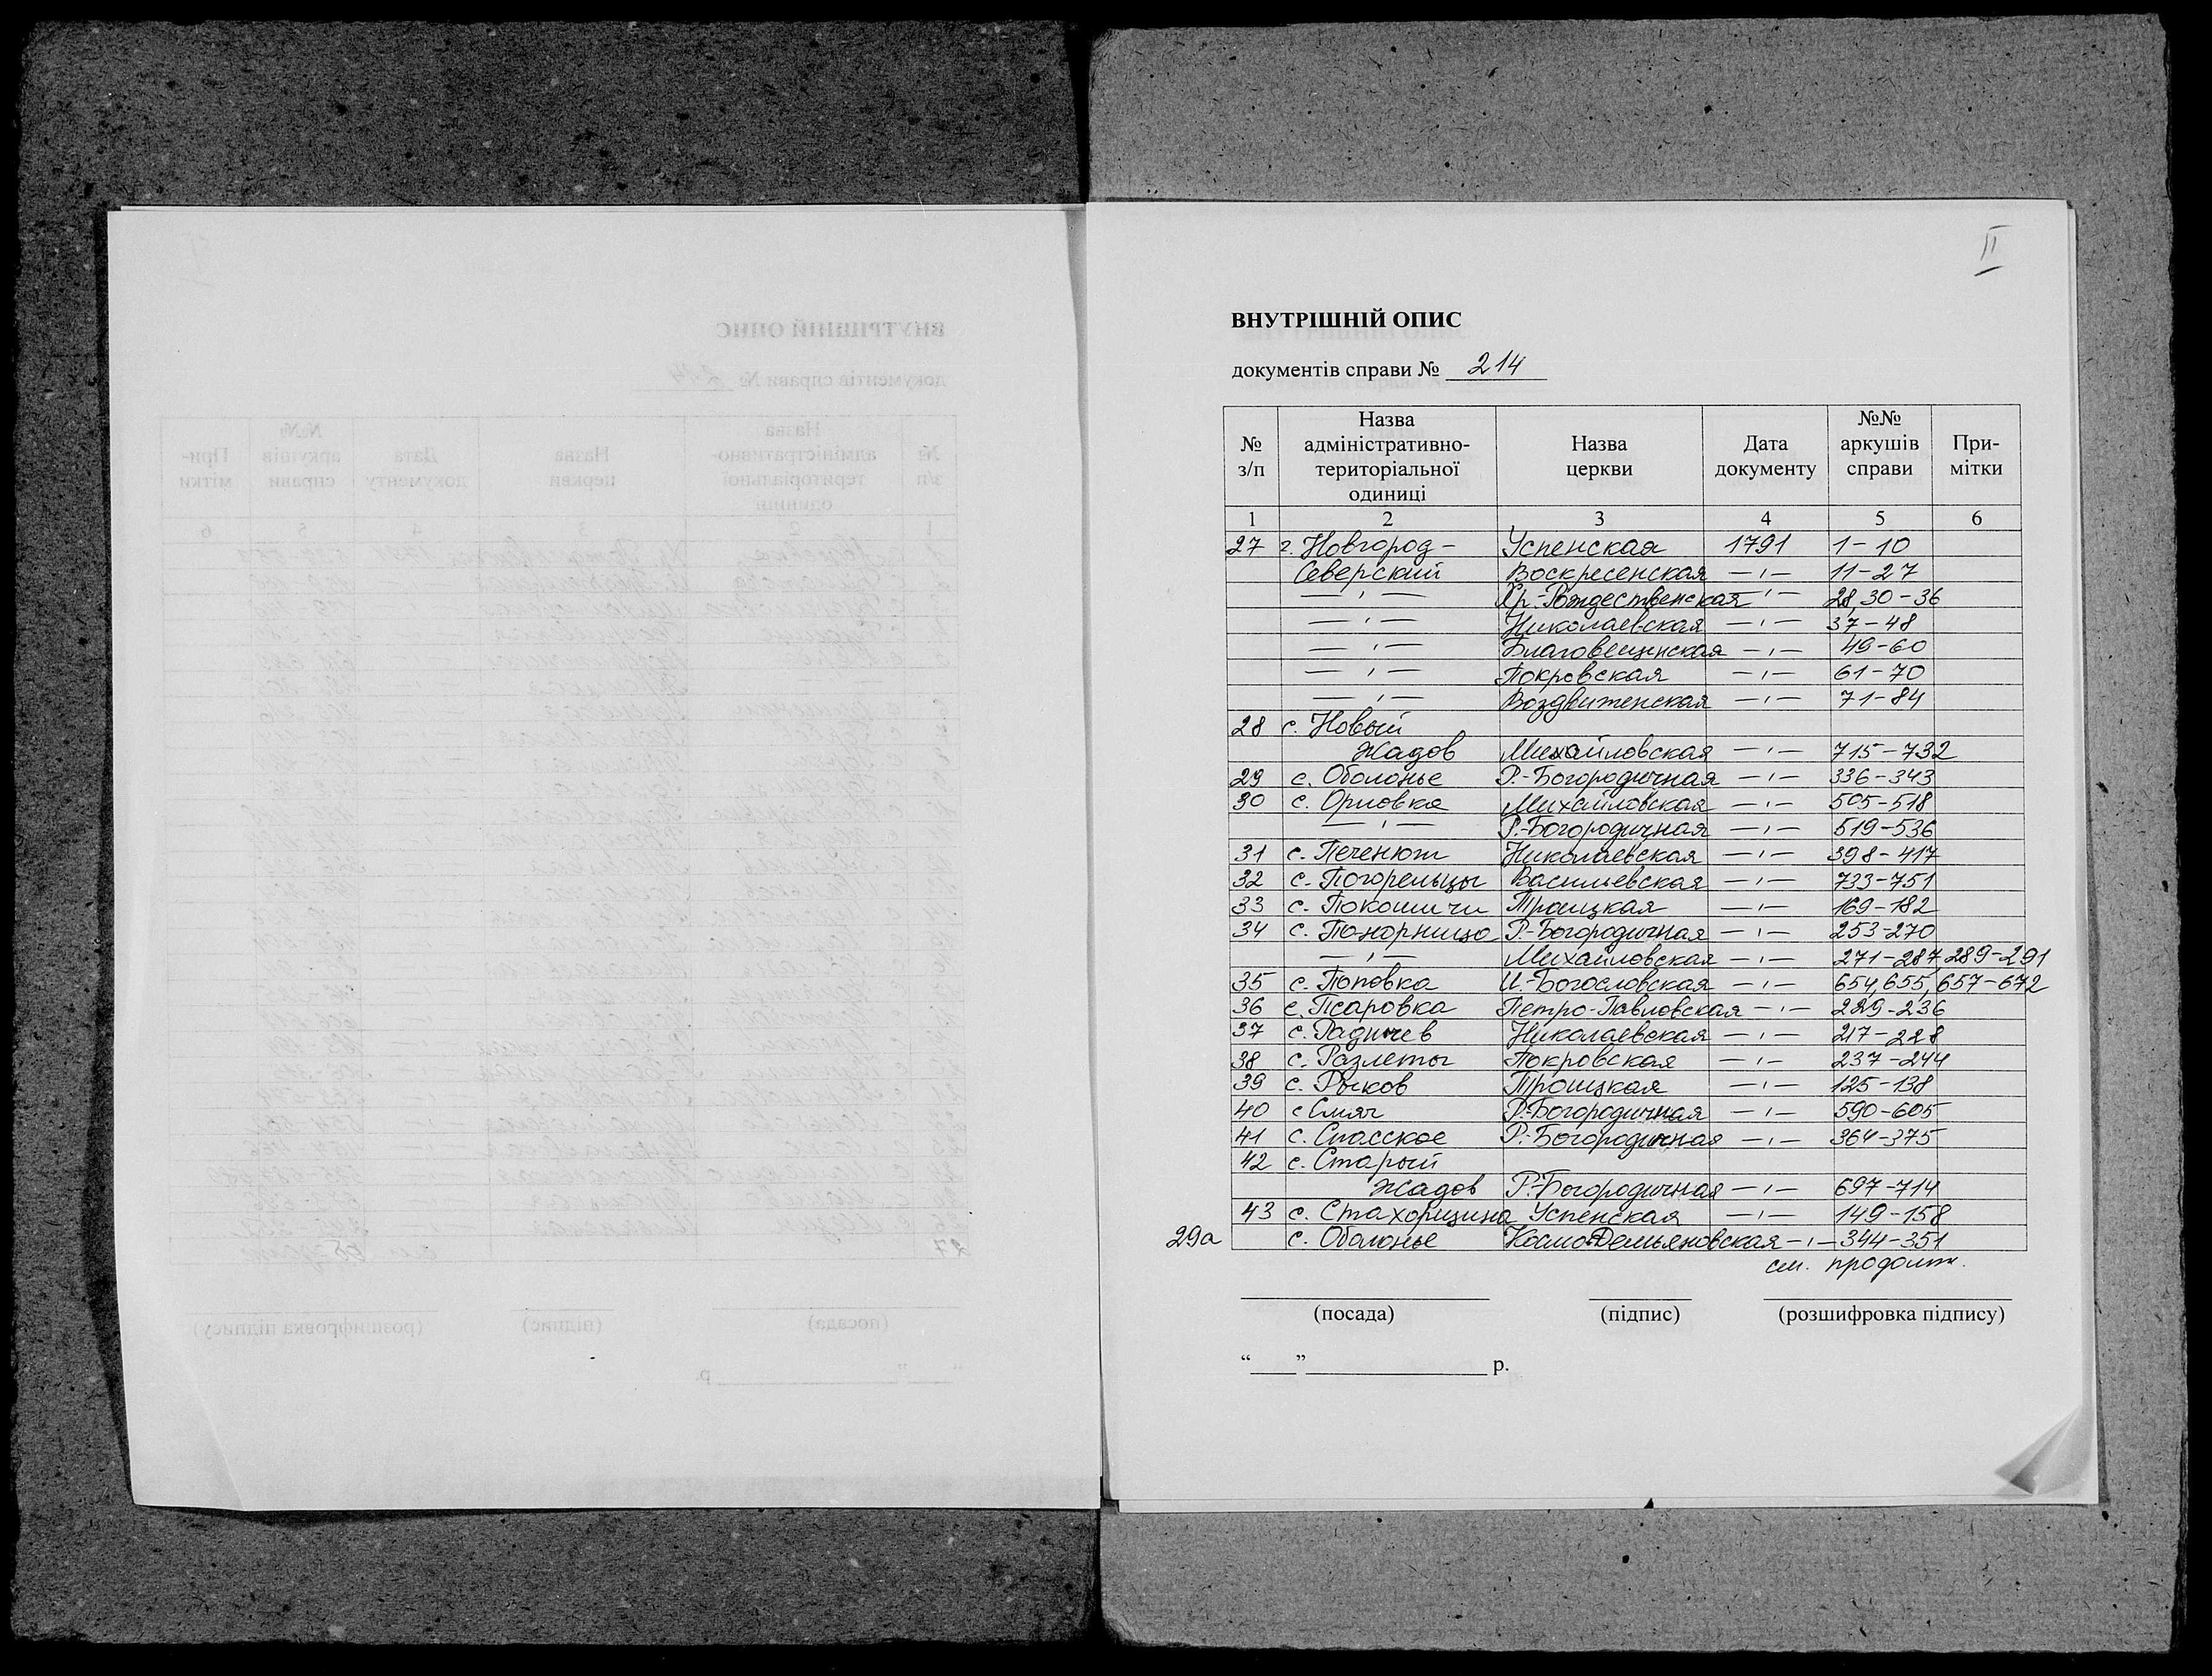 II
ВНУТРІШНІЙ ОПИС
документів справи № 214
№ з/п | Назва адміністративно-територіальної одиниці | Назва церкви | Дата документу | №№ аркушів справи | При-мітки
1 2 3 4 5 6
27 г. Новгород- Успенская 1791 1-10
Северский Воскресенская —〃— 11-27
—〃— Хр.-Рождественская —〃— 28, 30-36
—〃— Николаевская —〃— 37-48
—〃— Благовещенская —〃— 49-60
—〃— Покровская —〃— 61-70
—〃— Воздвиженская —〃— 71-84
28 с. Новый
Жадов Михайловская —〃— 715-732
29 с. Оболонье Р.-Богородичная —〃— 336-343
30 с. Орловка Михайловская —〃— 505-518
—〃— Р.-Богородичная —〃— 519-536
31 с. Печенюги Николаевская —〃— 398-417
32 с. Погорельцы Васильевская —〃— 733-751
33 с. Покошичи Троицкая —〃— 169-182
34 с. Понорница Р.-Богородичная —〃— 253-270
—〃— Михайловская —〃— 271-287, 289-291
35 с. Поповка И.-Богословская —〃— 654, 655, 657-672
36 с. Псаровка Петро-Павловская —〃— 229-236
37 с. Радичев Николаевская —〃— 217-228
38 с. Разлеты Покровская —〃— 237-244
39 с. Рыков Троицкая —〃— 125-138
40 с Смяч Р.-Богородичная —〃— 590-605
41 с. Спасское Р.-Богородичная —〃— 364-375
42 с. Старый
Жадов Р.-Богородичная —〃— 697-714
43 с. Стахорщина Успенская —〃— 149-158
29а с. Оболонье Космо-Демьяновская —〃— 344-351
см. продолж.
(посада) (підпис) (розшифровка підпису)
“____” ________________ р.